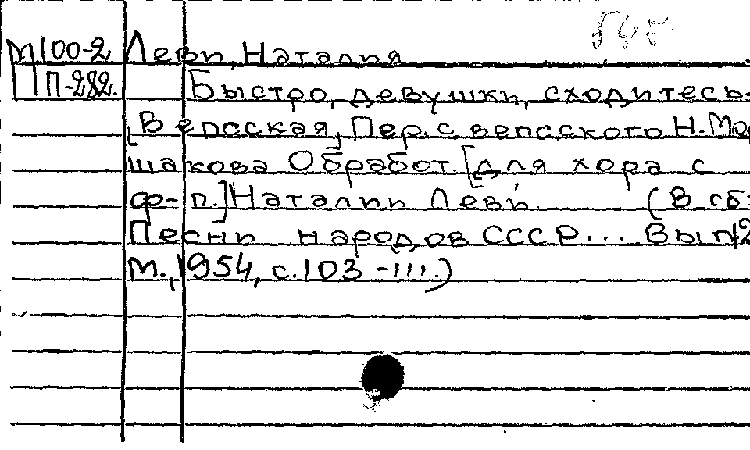 М100-2 Леви, Наталия
П-282. Быстро, девушки, сходитесь.
[Вепсская, Пер. с вепсского Н. Мор
шакова Обработ. [для хора с
ф-п.] Наталии Леви. (В сб:
Песни народов СССР... Вып 2
М., 1954, с. 103-111.)